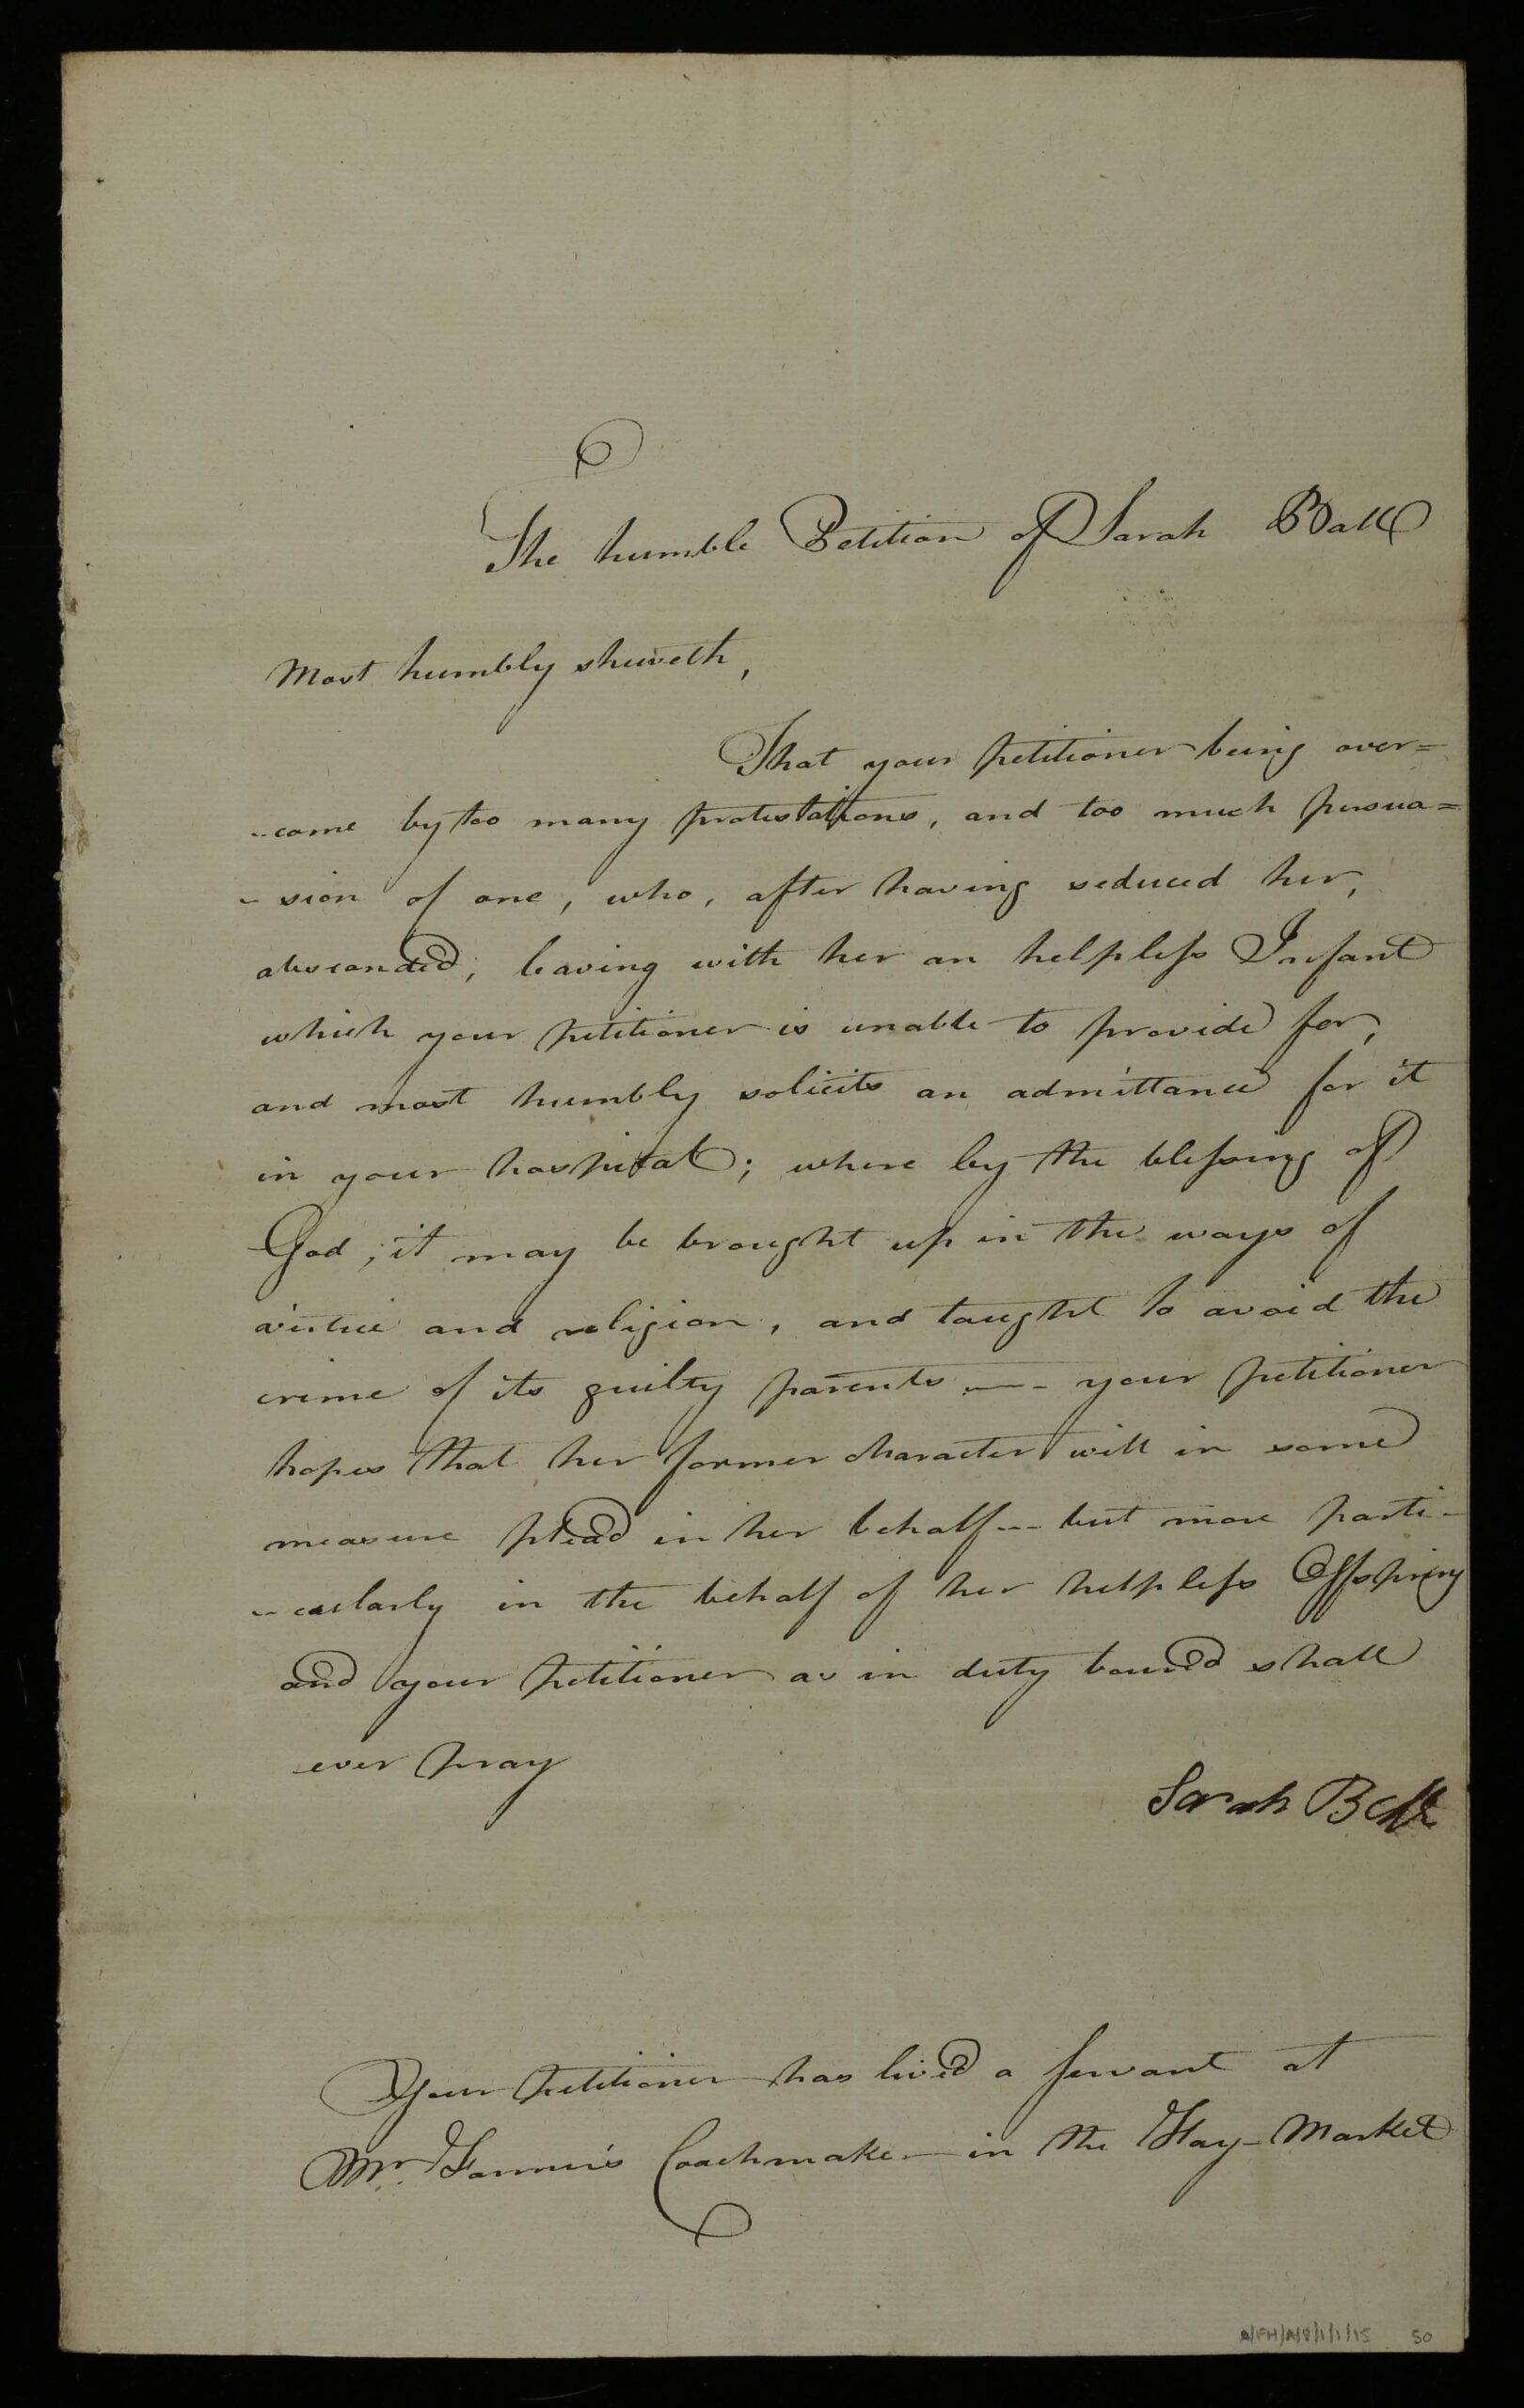 The humble Petition of Sarah Ball
Most humbly sheweth,
That your petitioner being over=
-come by too many protestations, and too much persua=
-sion of one, who, after having seduced her,
absconded, leaving with her an helpless Infant
which your petitioner is unable to provide for,
and most humbly solicits an admittance for it
in your hospital; where by the blessing of
God, it may be brought up in the ways of
virtue and religion, and taught to avoid the
crime of its guilty parents -- your petitioner
hopes that her former character will in some
measure plead in her behalf -- but more parti-
-cularly in the behalf of her helpless Offspring
and your petitioner as in duty bound shall
ever pray
Sarah
Your petitioner has lived a servant at
Mr. Coachmaker in the Hay-Market
A/FH/A/8/1/1/15 50